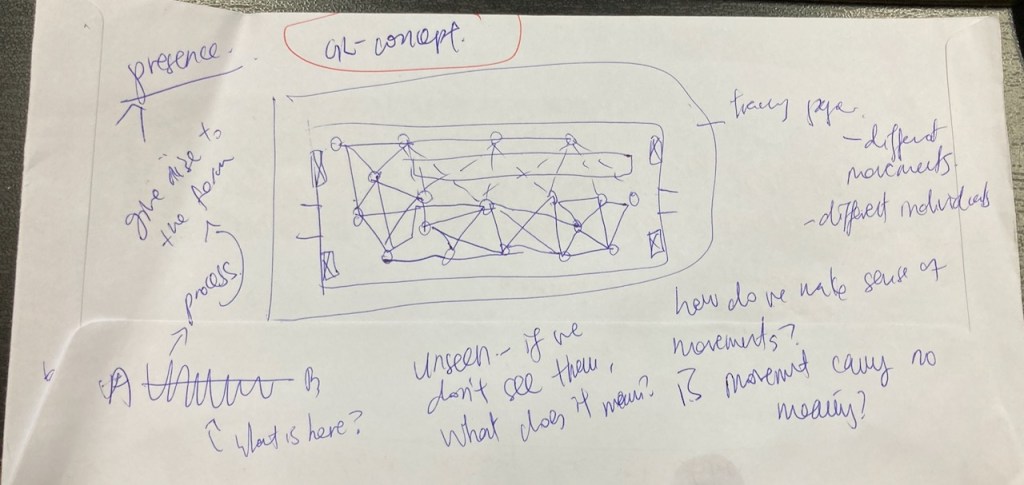 presence.
GL-concept.
give rise to
the form
process
tracing paper.
- different
movements.
- different individuals
how do we make sense of
movements?
Is movement carry no
meaning?
unseen - if we
don't see them,
what does it mean?
A
B
What is here?